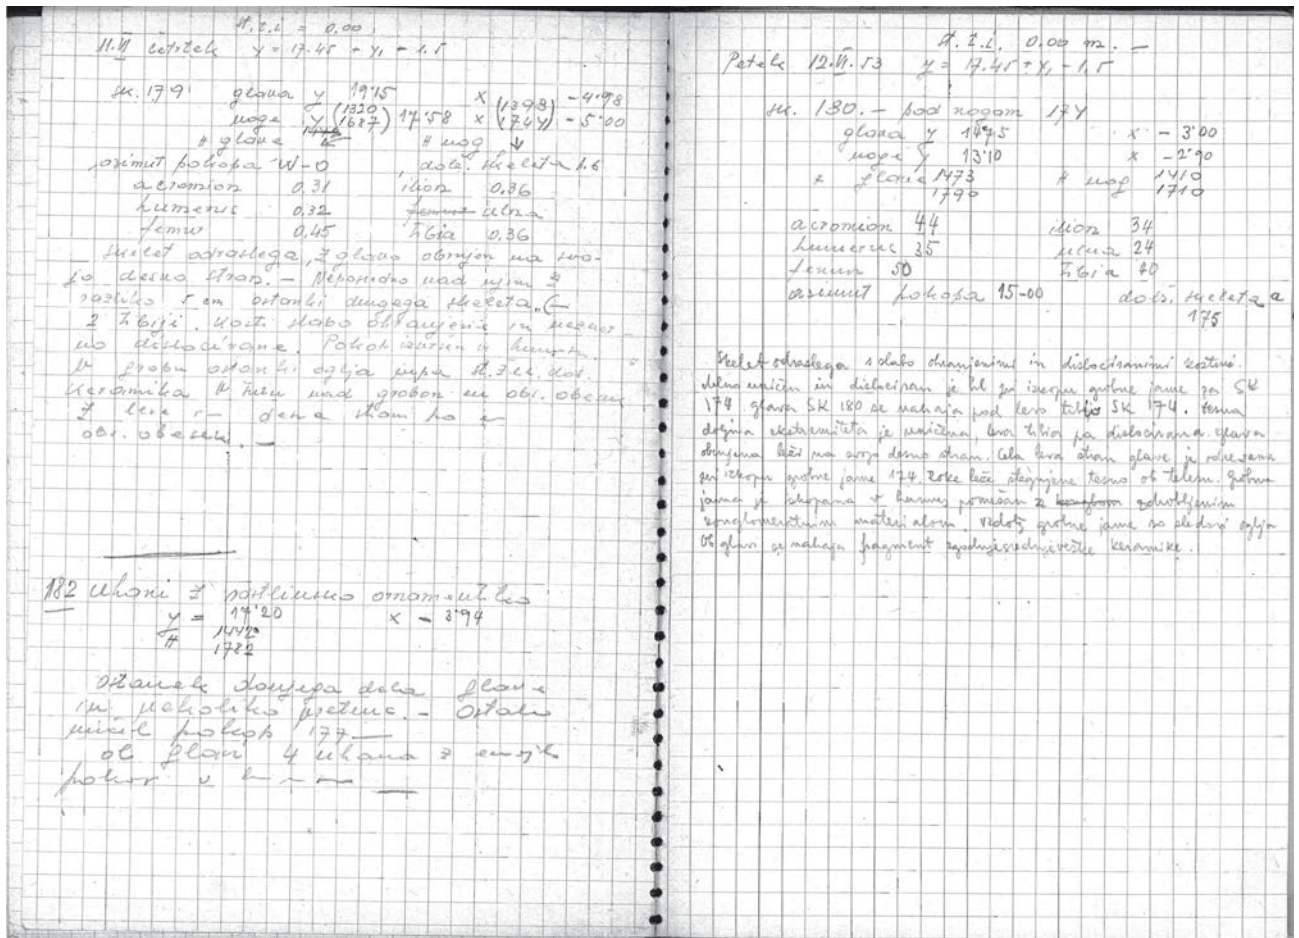 H.z.i = 0.00
11.VI četrtek y = 17.45 + y₁ - 1.5
sk. 179 glava y 19'15 x (1393) - 4'98
noge y (1320) (1687) 17'58 x (1744) - 5'00
H glave H nog
azimut pokopa W-O, dolž. skeleta 1.6
acromion 0.31 ilion 0.36
humerus 0.32 ulna
femur 0.45 tibia 0.36
skelet odraslega, z glavo obrnjen na svo-
jo desno stran. - Neposredno nad njim z
razliko 5 cm ostanki drugega skeleta. (
2 tibiji. Kosti slabo ohranjene in
no dislocirane. Pokop izvršen v humus.
V grobu ostanki oglja
Keramika nad grobom
z leve
obs. obeski. —
182 Uhani z rastlinsko ornamentiko
y = 17'20 x - 3'94
H 1442
1782
Ostanek donjega dela glave
in nekoliko prstena. - Ostalo
uničil pokop 177 —
ob glavi 4 uhana z emajl
pokop v h
H.z.i. 0.00 m. —
Petek 12.VI.53 y = 17.45 + y₁ - 1.5
sk. 180. - pod nogom 174
glava y 1475 x - 3'00
noge y 13'10 x - 2'90
H glave 1473 H nog 1410
1790 1710
acromion 44 ilion 34
humerus 35 ulna 24
femur 50 tibia 40
azimut pokopa 15-00 dolž. skeleta a
175
Skelet odraslega s slabo ohranjenimi in dislociranimi kostmi.
delno uničen in dislociran je bil pri izkopu grobne jame za SK
174. glava SK 180 se nahaja pod levo tibijo SK 174. desna
doljna ekstremiteta je uničena, leva tibia pa dislocirana. glava
obrnjena leži na svojo desno stran. Cela leva stran glave je odrezana
pri izkopu grobne jame 174. roke leže stegnjene tesno ob telesu. Grobna
jama je skopana v humus pomešan z zdrobljenim
konglomeratnim materialom. vzdolž grobne jame so sledovi oglja
Ob glavi se nahaja fragment zgodnjesrednjeveške keramike.